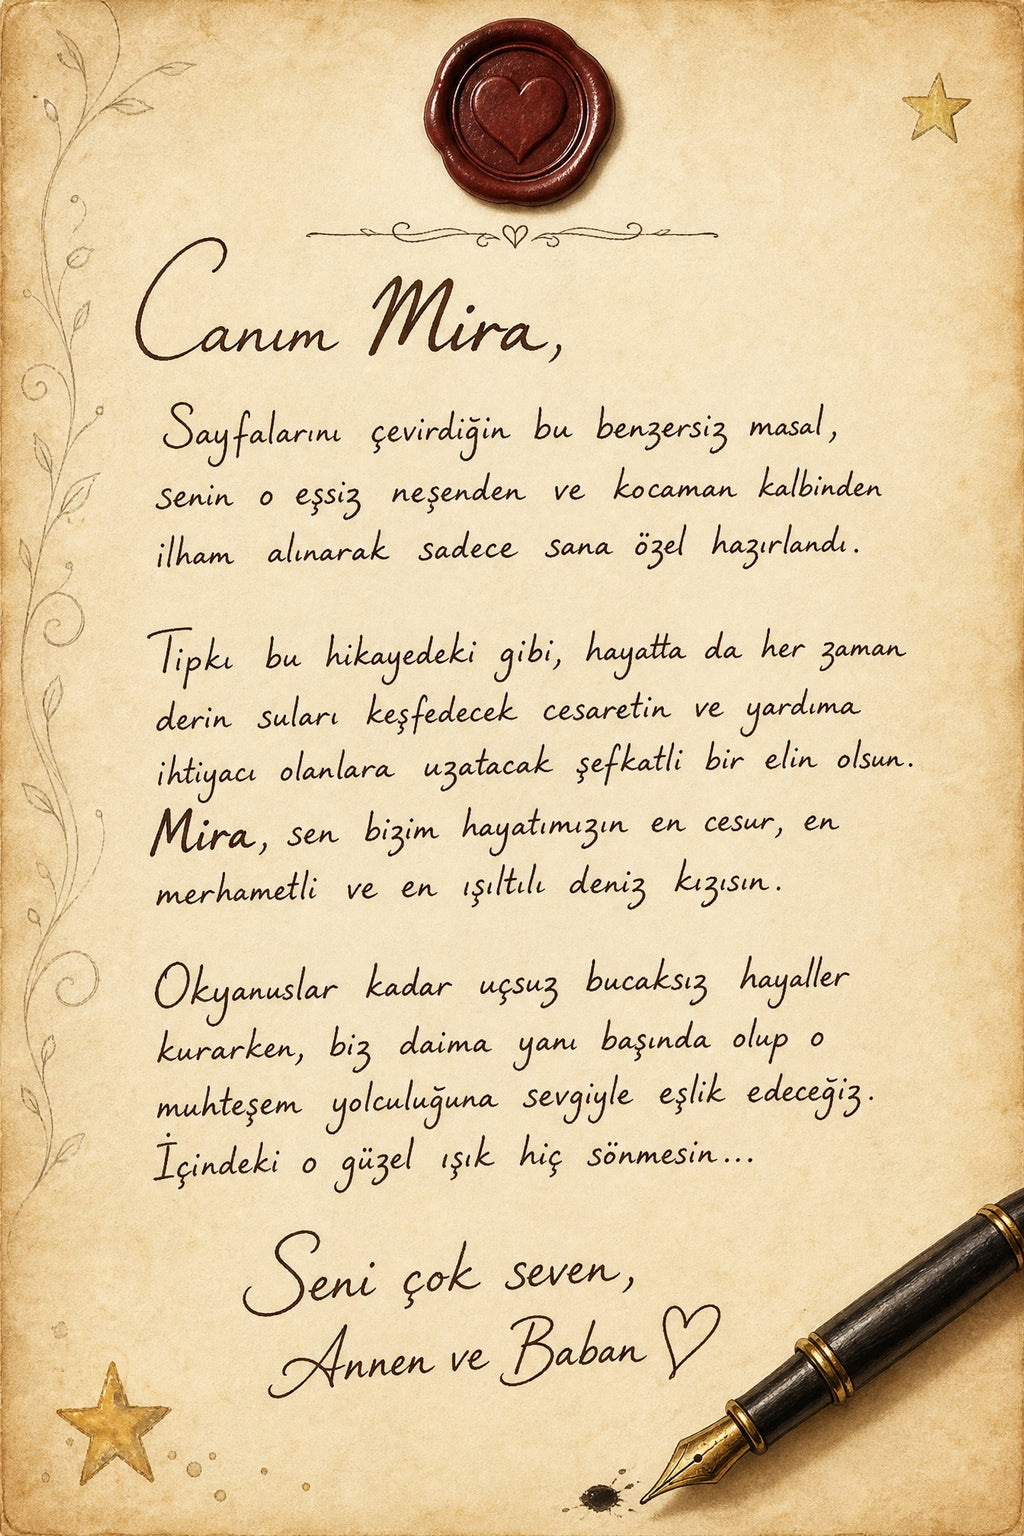 Canım Mira,
Sayfalarını çevirdiğin bu benzersiz masal,
senin o eşsiz neşenden ve kocaman kalbinden
ilham alınarak sadece sana özel hazırlandı.
Tıpkı bu hikayedeki gibi, hayatta da her zaman
derin suları keşfedecek cesaretin ve yardıma
ihtiyacı olanlara uzatacak şefkatli bir elin olsun.
Mira, sen bizim hayatımızın en cesur, en
merhametli ve en ışıltılı deniz kızısın.
Okyanuslar kadar uçsuz bucaksız hayaller
kurarken, biz daima yanı başında olup o
muhteşem yolculuğuna sevgiyle eşlik edeceğiz.
İçindeki o güzel ışık hiç sönmesin...
Seni çok seven,
Annen ve Baban ♡